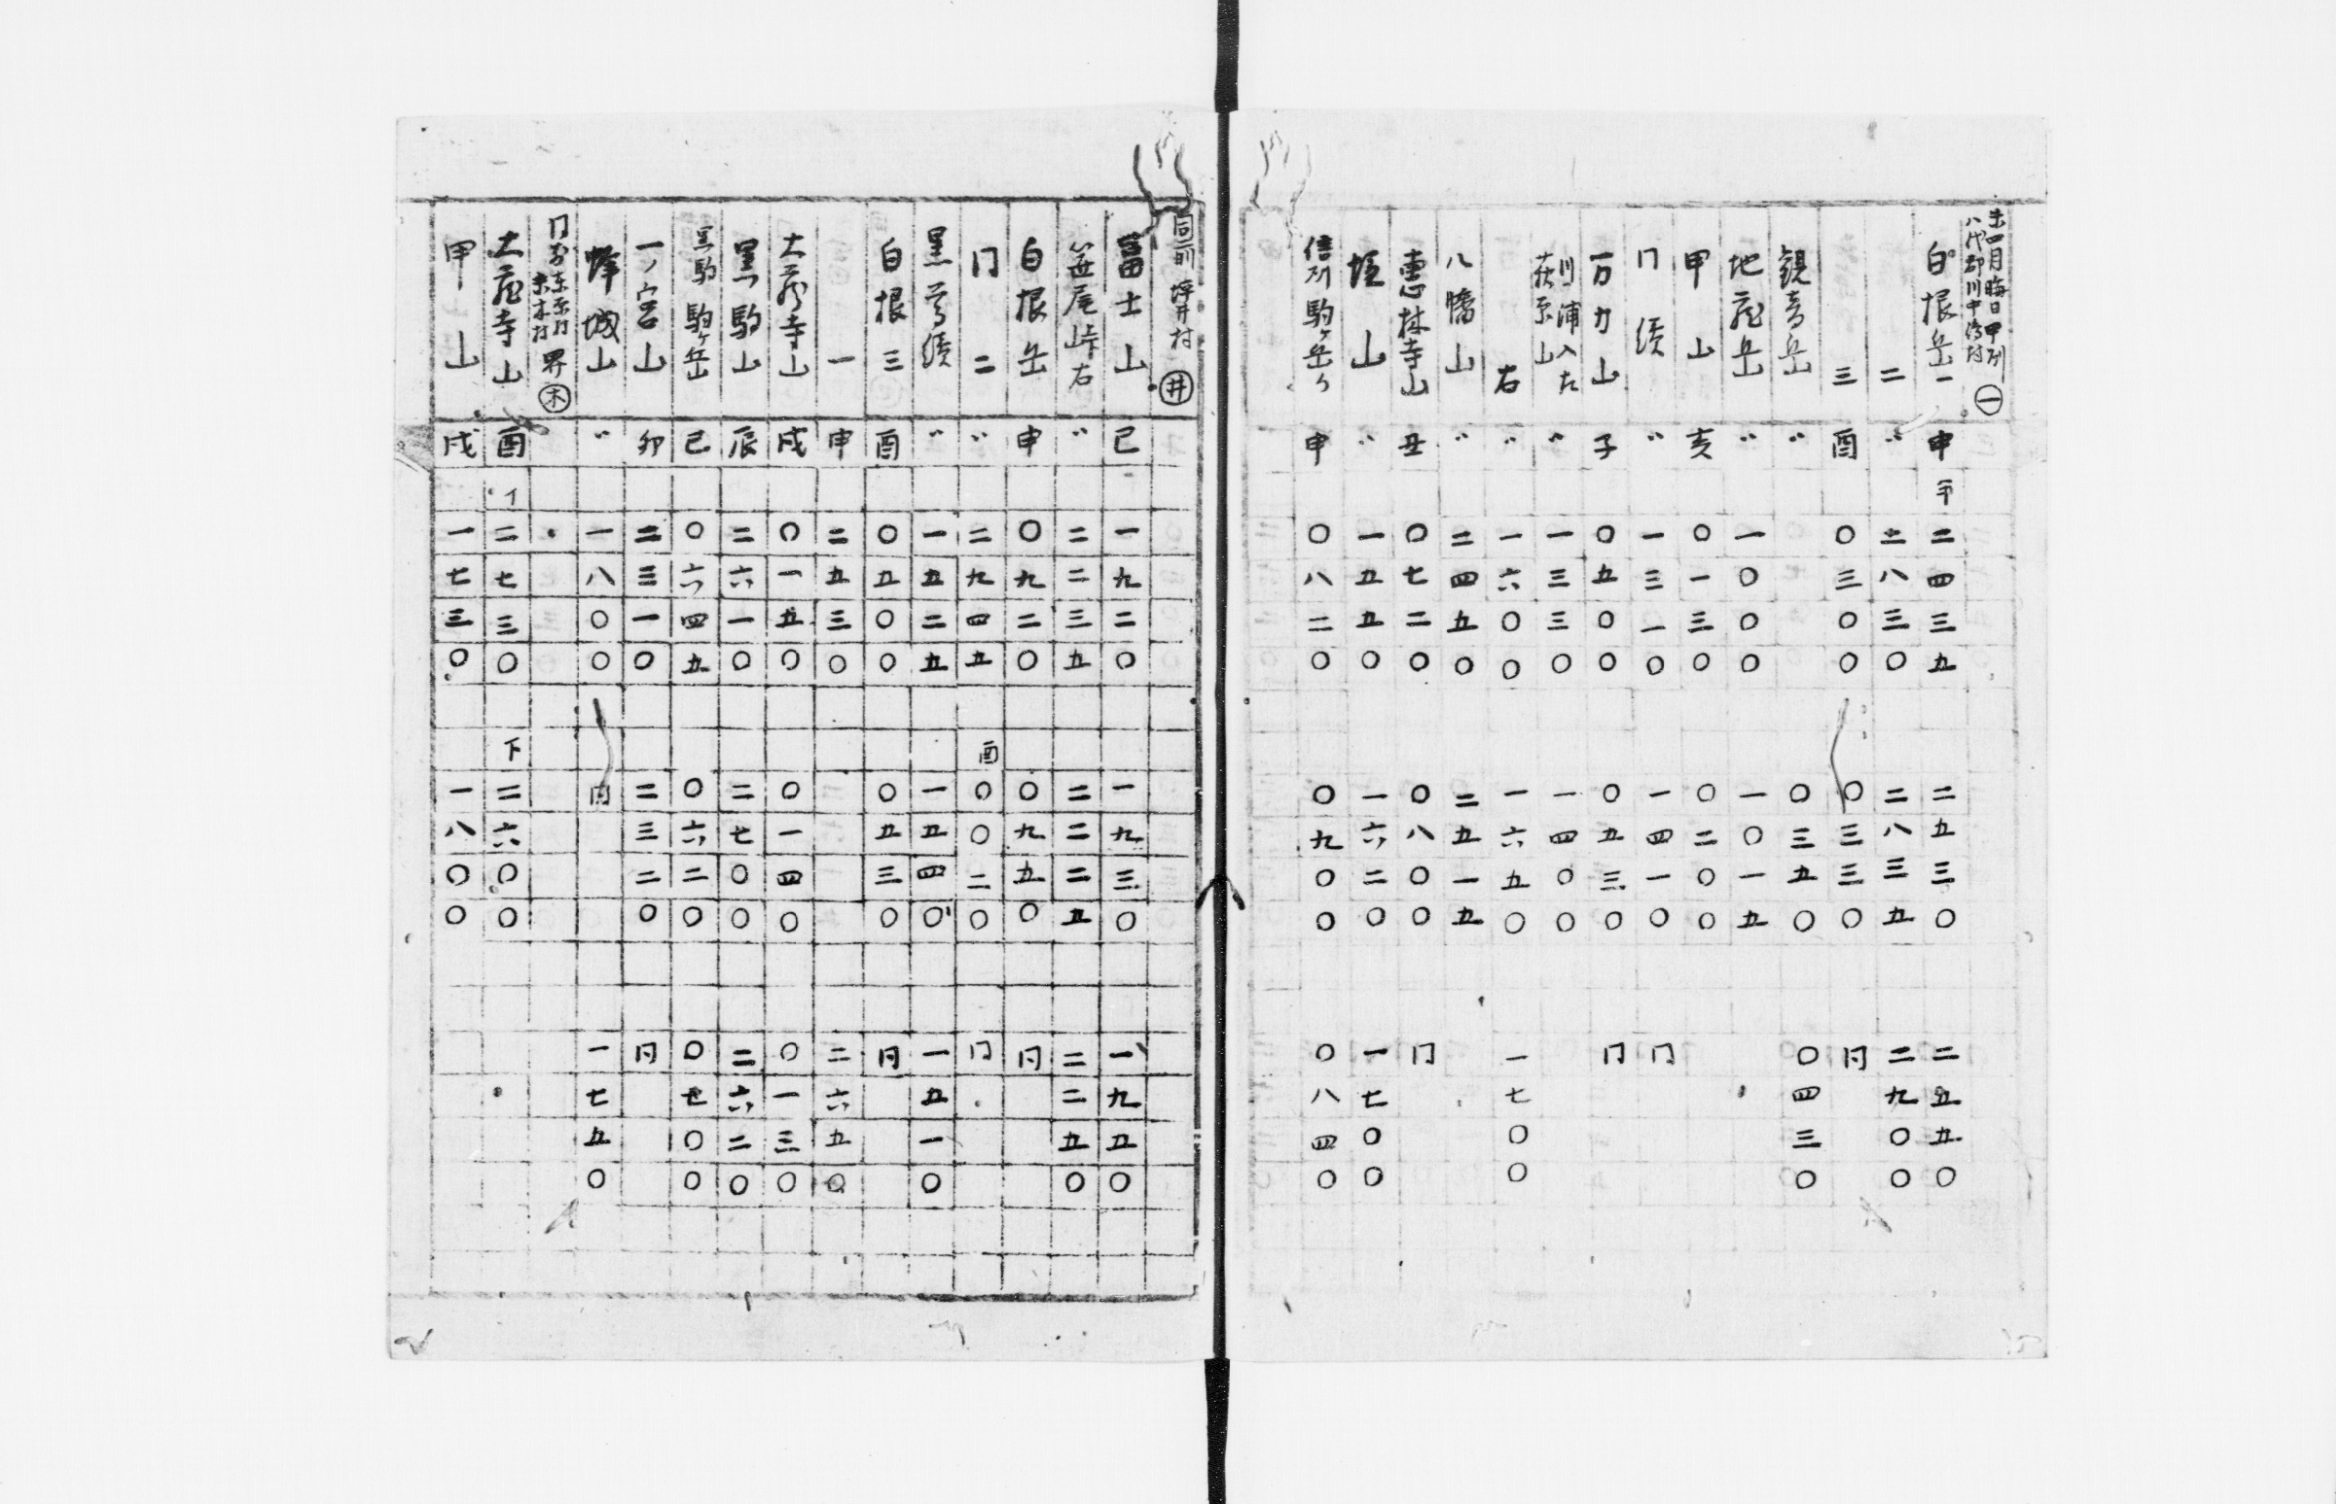 未四月晦日 甲州
八代郡川中嶋村 ㊀
白根岳一 申 二四三五 二五三〇 二五五〇
二 〃 二八三〇 二八三五 二九〇〇
三 酉 〇三〇〇 〇三三〇 同
観音岳 〃 〇三五〇 〇四三〇
地蔵岳 〃 一〇〇〇 一〇一五
甲山 亥 〇一三〇 〇二〇〇
同續 〃 一三一〇 一四一〇 同
万力山 子 〇五〇〇 〇五三〇 同
川浦入左
萩原山 〃 一三三〇 一四〇〇
右 〃 一六〇〇 一六五〇 一七〇〇
八幡山 〃 二四五〇 二五一五
恵林寺山 丑 〇七二〇 〇八〇〇 同
塩山 〃 一五五〇 一六二〇 一七〇〇
信州駒ヶ岳 申 〇八二〇 〇九〇〇 〇八四〇
同前 坪井村 ㊉
冨士山 巳 一九二〇 一九三〇 一九五〇
笹尾峠右 〃 二二三五 二二二五 二二五〇
白根岳 申 〇九二〇 〇九五〇 同
同二 〃 二九四五 酉 〇〇二〇 同
黒岳續 〃 一五二五 一五四〇 一五一〇
白根三 酉 〇五〇〇 〇五三〇 同
一 申 二五三〇 二六五〇
大蔵寺山 戌 〇一五〇 〇一四〇 〇一三〇
黒駒山 辰 二六一〇 二七〇〇 二六二〇
黒駒駒ヶ岳 巳 〇六四五 〇六二〇 〇七〇〇
一ノ宮山 卯 二三一〇 二三二〇 同
蜂城山 〃 一八〇〇 同 一七五〇
同前東原村
末木村 界 ㊍
大蔵寺山 酉 イ 二七三〇 下 二六〇〇
甲山 戌 一七三〇 一八〇〇